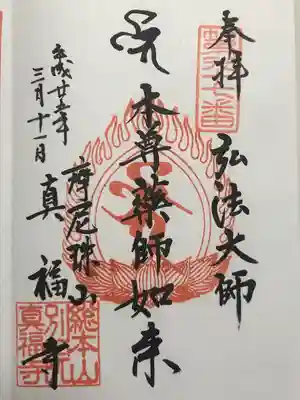 奉拝
弘法大師
本尊藥師如来
平成廿
三月十一日
摩尼珠山
真福寺
總本山
別院
真福寺